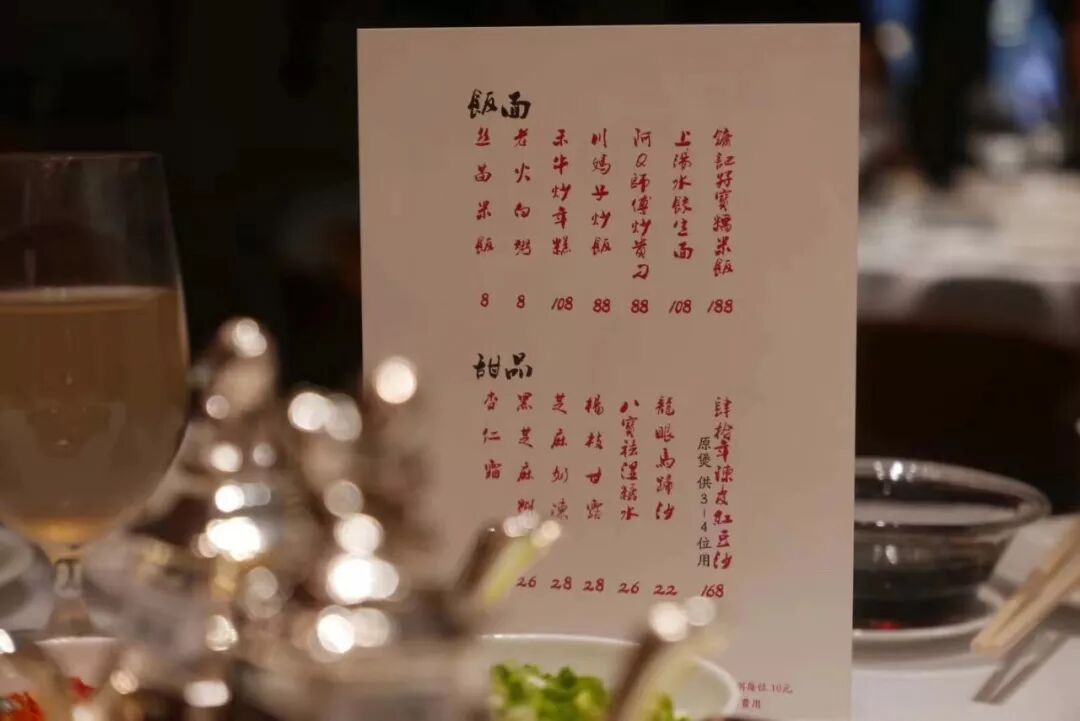 飯面
記特寶糯米飯
188
上湯水餃生面
108
阿Q師傅炒貴刁
88
川媽子炒飯
88
禾牛炒年糕
108
老火白粥
8
丝苗米飯
8
甜品
肆拾年陳皮紅豆沙
原煲供3-4位用
168
龍眼馬蹄沙
22
八寶祛湿糖水
26
楊枝甘露
28
芝麻奶凍
28
黑芝麻糊
26
杏仁霜
每位10元
費用